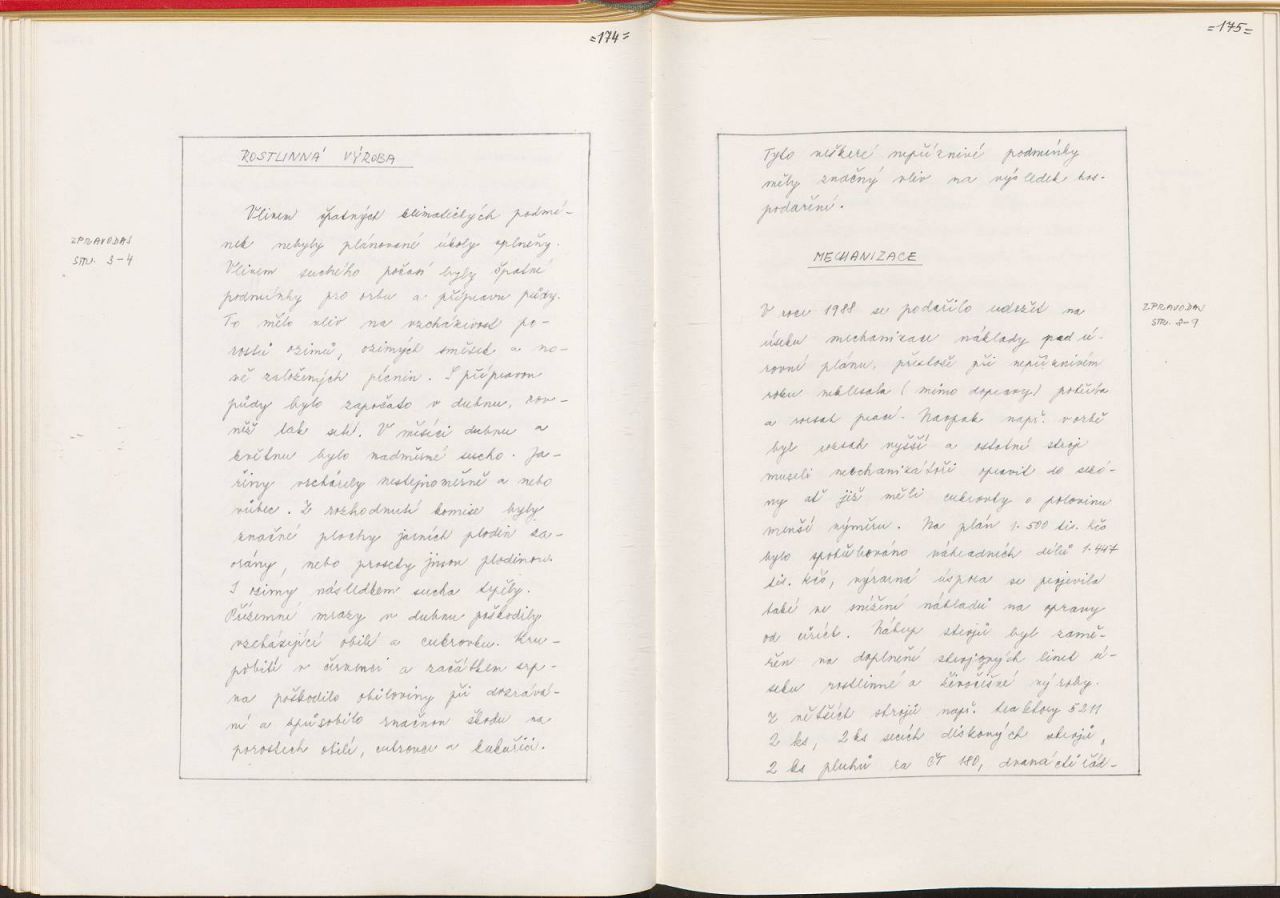 =174=
ROSTLINNÁ VÝROBA
Vlivem špatných klimatických podmí-
nek nebyly plánované úkoly splněny.
ZPRAVODAJ
STR. 3-4
Vlivem suchého počasí byly špatné
podmínky pro orbu a přípravu půdy.
To mělo vliv na vzcházivost po-
rostů ozimů, ozimých směsek a no-
vě založených pícnin. S přípravou
půdy bylo započato v dubnu, rov-
něž tak setí. V měsíci dubnu a
květnu bylo nadměrné sucho. Ja-
řiny vzcházely nestejnoměrně a nebo
vůbec. Z rozhodnutí komise byly
značné plochy jarních plodin za-
orány, nebo prosety jinou plodinou.
I ozimy následkem sucha trpěly.
Přízemní mrazy v dubnu poškodily
vzcházející obilí a cukrovku. Kru-
pobití v červenci a začátkem srp-
na poškodilo obiloviny při dozrává-
ní a způsobilo značnou škodu na
porostech obilí, cukrovce a kukuřici.
=175=
Tyto veškeré nepříznivé podmínky
měly značný vliv na výsledek hos-
podaření.
MECHANIZACE
V roce 1988 se podařilo udržet na
ZPRAVODAJ
STR. 8-9
úseku mechanizace náklady pod ú-
rovní plánu, přestože při nepříznivém
roku neklesala (mimo dopravy) potřeba
a rozsah prací. Naopak např. v orbě
byl rozsah vyšší a ostatní stroje
museli mechanizátoři opravit do sezó-
ny ať již měli cukrovky o polovinu
menší výměru. Na plán 1.500 tis. Kčs
bylo spotřebováno náhradních dílů 1.447
tis. Kčs, výrazná úspora se projevila
také ve snížení nákladů na opravy
od cizích. Nákup strojů byl zamě-
řen na doplnění strojových linek ú-
seku rostlinné a živočišné výroby.
Z větších strojů např. traktory 5211
2 ks, 2 ks secích diskových strojů,
2 ks pluhů za ČT 180, dvanácti řád-